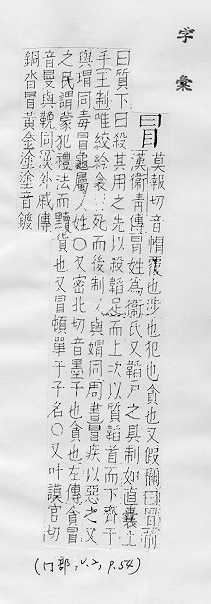 字彙
冒
莫報切音帽覆也涉也犯也貪也又假關曰冒前
漢衛青傳冒姓為衛氏又韜尸之具制如直囊上
曰質下曰殺其用之先以殺韜足而上次以質韜首而下齊于
手王制唯絞紟衾死而後制又與媢同周書冒疾以惡之又
與瑁同毒冒龜屬人姓○又密北切音墨干也貪也左傳貪冒
之民謂蒙犯禮法而黷貨也又冒頓單于子名○又叶謨官切
音曼與鞔同漢外戚傳
銅沓冒黃金塗塗音鍍
(冂部, v.2, p.54)